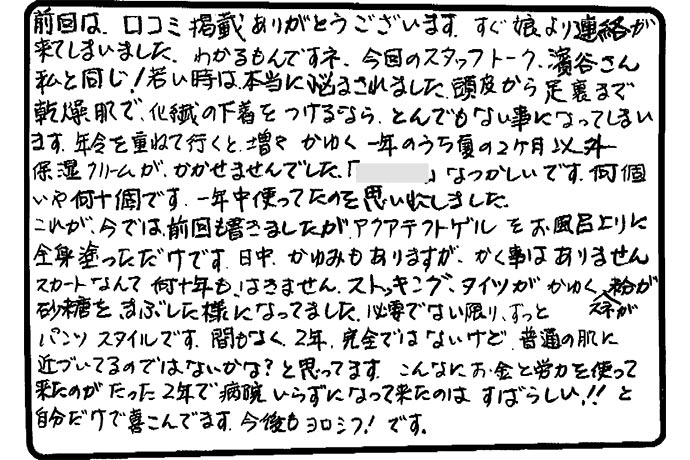 前回は、口コミ掲載ありがとうございます。すぐ娘より連絡が
来てしまいました。わかるもんですネ。今回のスタッフトーク、濱谷さん
私と同じ!若い時は、本当に悩まされました。頭皮から足裏まで
乾燥肌で、化繊の下着をつけるなら、とんでもない事になってしまい
ます。年令を重ねて行くと、増々かゆく一年のうち夏の2ケ月以外
保湿クリームが、かかせませんでした。「」なつかしいです。何個
いや何十個です。一年中使ってたのを思い出しました。
これが、今では、前回も書きましたが、アクアテクトゲルをお風呂上りに
全身塗っただけです。日中、かゆみもありますが、かく事はありません
スカートなんて何十年も、はきません。ストッキング、タイツがかゆく、粉が
砂糖を、まぶした様になってました。必要でない限り、ずっとスネが
パンツスタイルです。間もなく、2年、完全ではないけど、普通の肌に
近づいてるのではないかな?と思ってます。こんなにお金と労力を使って
来たのがたった2年で病院いらずになって来たのはすばらしい!!と
自分だけで喜こんでます。今後もヨロシク!です。